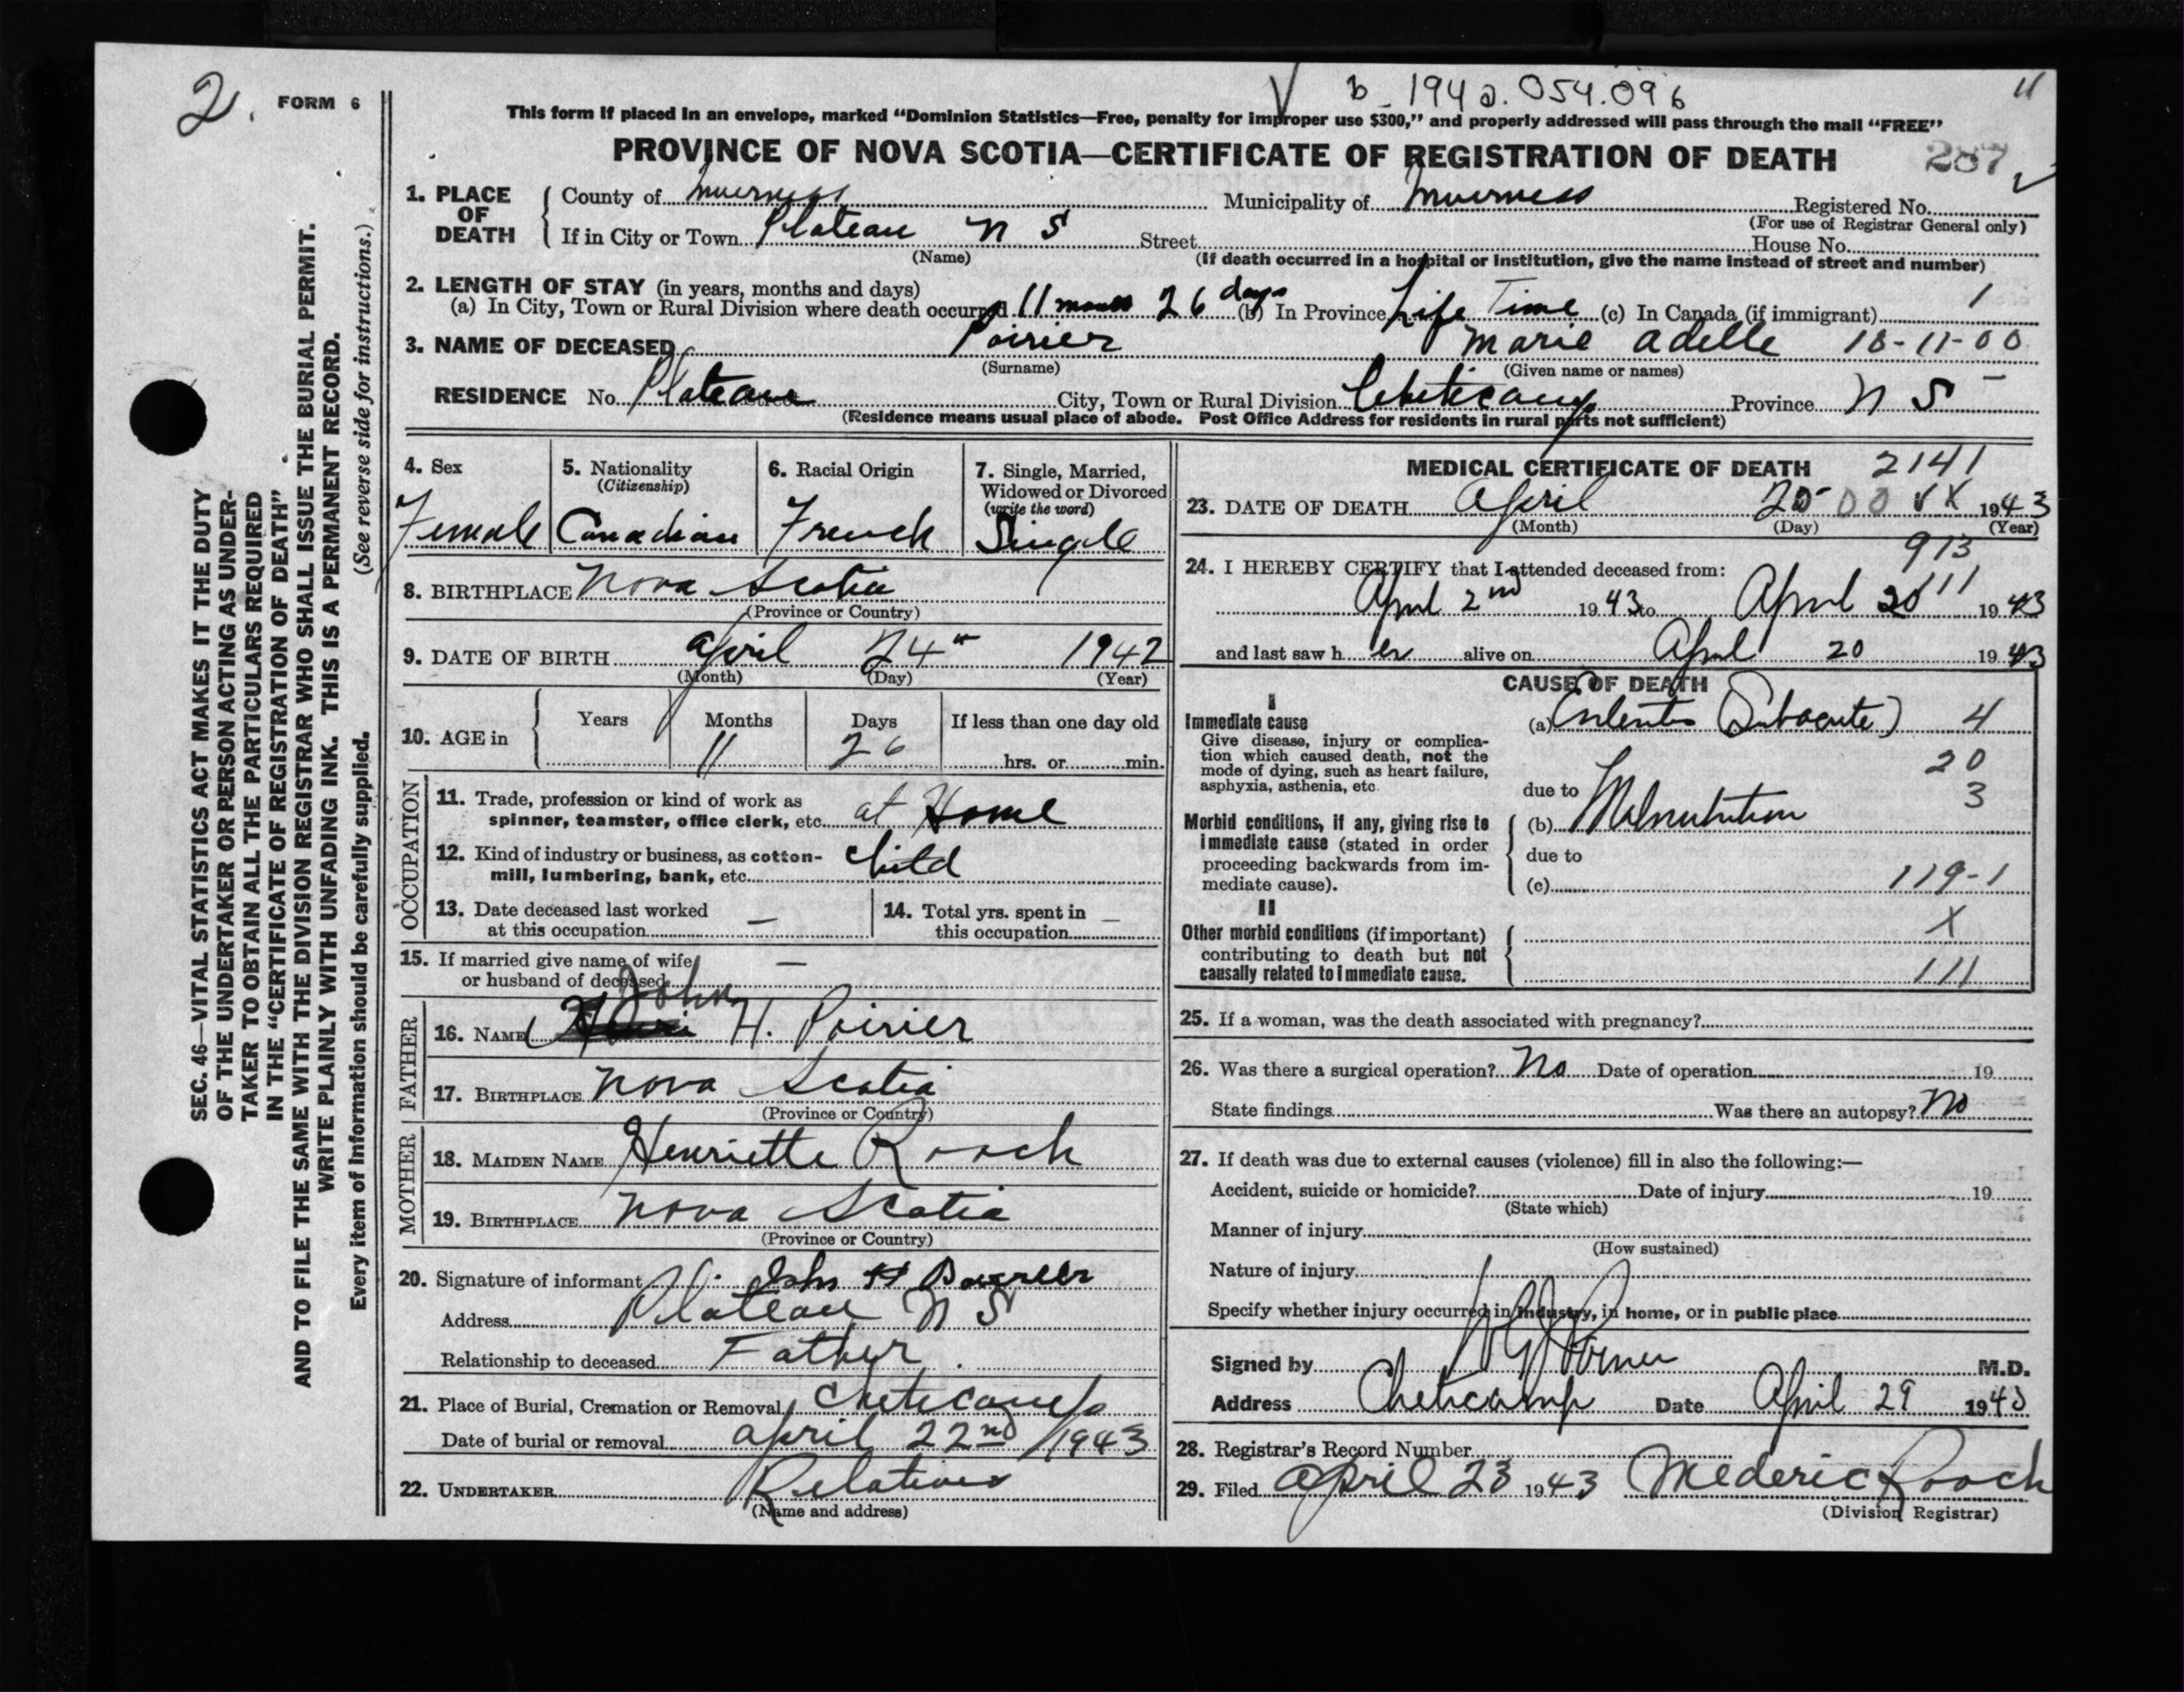 2.
FORM 6
√ b-1942.054.096
11
This form if placed in an envelope, marked "Dominion Statistics—Free, penalty for improper use $300," and properly addressed will pass through the mail "FREE"
PROVINCE OF NOVA SCOTIA—CERTIFICATE OF REGISTRATION OF DEATH
287 ✓
1. PLACE OF DEATH
County of Inverness Municipality of Inverness Registered No.
(For use of Registrar General only)
If in City or Town Plateau N S Street House No.
(Name) (If death occurred in a hospital or institution, give the name instead of street and number)
2. LENGTH OF STAY (in years, months and days)
(a) In City, Town or Rural Division where death occurred 11 months 26 days (b) In Province Life Time (c) In Canada (if immigrant) 1
3. NAME OF DECEASED Poirier Marie Adelle 18-11-00
(Surname) (Given name or names)
RESIDENCE No. Plateau Street City, Town or Rural Division Cheticamp Province N S
(Residence means usual place of abode. Post Office Address for residents in rural parts not sufficient)
4. Sex
Female
5. Nationality
(Citizenship)
Canadian
6. Racial Origin
French
7. Single, Married,
Widowed or Divorced
(write the word)
Single
8. BIRTHPLACE Nova Scotia
(Province or Country)
9. DATE OF BIRTH April 24th 1942
(Month) (Day) (Year)
10. AGE in
Years Months Days If less than one day old
11 26 hrs. or min.
OCCUPATION
11. Trade, profession or kind of work as
spinner, teamster, office clerk, etc. at Home
12. Kind of industry or business, as cotton-
mill, lumbering, bank, etc. Child
13. Date deceased last worked
at this occupation —
14. Total yrs. spent in
this occupation —
15. If married give name of wife
or husband of deceased —
FATHER
16. NAME John H. Poirier
17. BIRTHPLACE Nova Scotia
(Province or Country)
MOTHER
18. MAIDEN NAME Henriette Roach
19. BIRTHPLACE Nova Scotia
(Province or Country)
20. Signature of informant John H
Address Plateau N S
Relationship to deceased Father
21. Place of Burial, Cremation or Removal Cheticamp
Date of burial or removal April 22nd /1943
22. UNDERTAKER Relatives
(Name and address)
MEDICAL CERTIFICATE OF DEATH 2141
23. DATE OF DEATH April 20 1943
(Month) (Day) (Year)
913
24. I HEREBY CERTIFY that I attended deceased from:
April 2nd 1943 to April 20 111 1943
and last saw h er alive on April 20 1943
CAUSE OF DEATH
I
Immediate cause
Give disease, injury or complica-
tion which caused death, not the
mode of dying, such as heart failure,
asphyxia, asthenia, etc
(a) (Subacute) 4
20
due to 3
Morbid conditions, if any, giving rise to
immediate cause (stated in order
proceeding backwards from im-
mediate cause).
(b) Malnutrition
due to
(c) 119-1
II
Other morbid conditions (if important)
contributing to death but not
causally related to immediate cause.
X
111
25. If a woman, was the death associated with pregnancy?
26. Was there a surgical operation? No Date of operation 19
State findings Was there an autopsy? No
27. If death was due to external causes (violence) fill in also the following:—
Accident, suicide or homicide? Date of injury 19
(State which)
Manner of injury
(How sustained)
Nature of injury
Specify whether injury occurred in industry, in home, or in public place
Signed by M.D.
Address Cheticamp Date April 29 1943
28. Registrar's Record Number
29. Filed April 23 1943 Mederic Roach
(Division Registrar)
SEC. 46—VITAL STATISTICS ACT MAKES IT THE DUTY
OF THE UNDERTAKER OR PERSON ACTING AS UNDER-
TAKER TO OBTAIN ALL THE PARTICULARS REQUIRED
IN THE "CERTIFICATE OF REGISTRATION OF DEATH"
AND TO FILE THE SAME WITH THE DIVISION REGISTRAR WHO SHALL ISSUE THE BURIAL PERMIT.
WRITE PLAINLY WITH UNFADING INK. THIS IS A PERMANENT RECORD.
Every item of information should be carefully supplied. (See reverse side for instructions.)